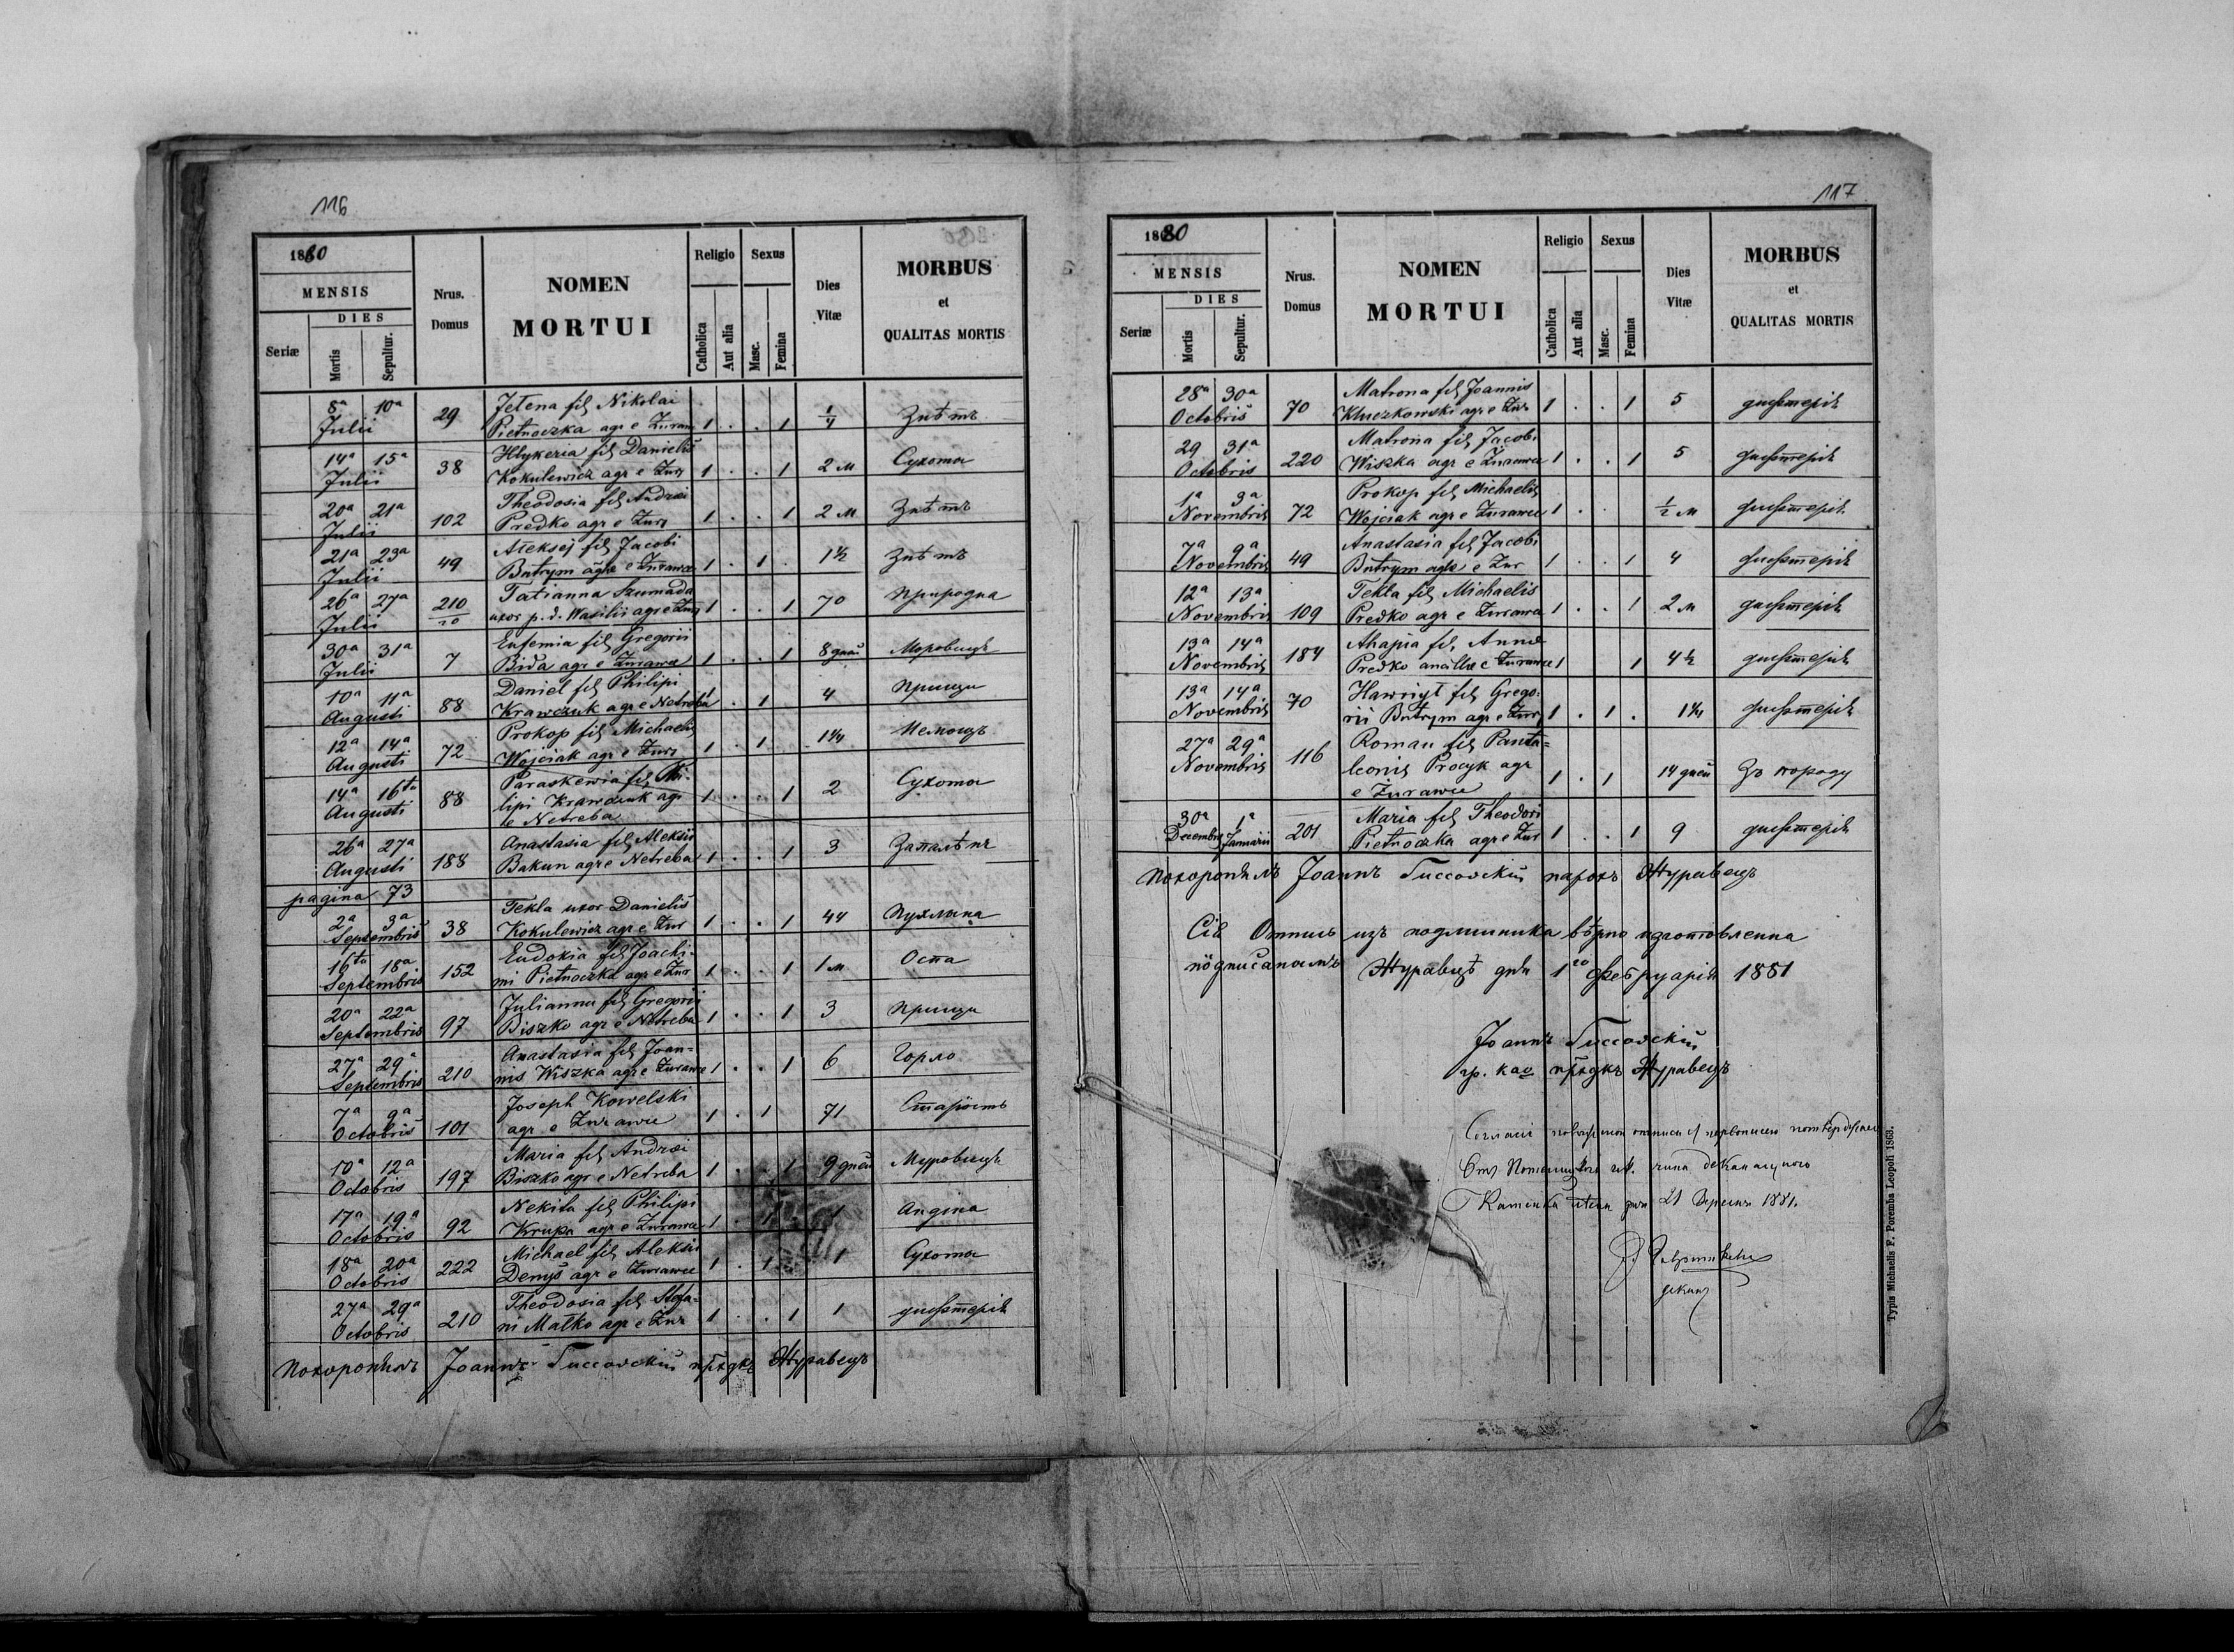 116
1880
MENSIS
DIES
Seriæ
Mortis
Sepultur.
Nrus.
Domus
NOMEN
MORTUI
Religio
Catholica
Aut alia
Sexus
Masc.
Femina
Dies
Vitæ
MORBUS
et
QUALITAS MORTIS
8ª 10ª Julii 29 Jełena fil Nikolai
Pietnoczka agr e Żuraw 1 . . 1 1/4 Знѣтъ
14ª 15ª Julii 38 Hlykeria fil Danielis
Kokulewicz agr e Żur 1 . . 1 2 м Сухота
20ª 21ª Julii 102 Theodosia fil Andreæ
Predko agr e Żur 1 . . 1 2 м Знѣтъ
21ª 23ª Julii 49 Ałeksej fil Jacobi
Butrym agr e Żurawce 1 . 1 . 1½ Знѣтъ
26ª 27ª Julii 210/20 Tatianna Szumada
uxor p. d. Wasilii agr e Żur 1 . . 1 70 Природна
30ª 31ª Julii 7 Eufemia fil Gregorii
Bida agr e Żurawce 1 . . 1 8 днѣй
10ª 11ª Augusti 88 Daniel fil Philipi
Krawczuk agr e Netreba 1 . 1 4 Прищи
12ª 14ª Augusti 72 Prokop fil Michaelis
Wojciak agr e Żur 1 . 1 1¼ Немощъ
14ª 16ta Augusti 88 Paraskewia fil Phi-
lipi Krawczuk agr
e Netreba 1 . . 1 2 Сухота
26ª 27ª Augusti 188 Anastasia fil Aleksii
Bakun agr e Netreba 1 . . 1 3
pagina 73
2ª 3ª Septembris 38 Tekla uxor Danielis
Kokulewicz agr e Żur 1 . . 1 44 Пухлина
16ta 18ª Septembris 152 Eudokia fil Joachi-
mi Pietnoczka agr e Żur 1 . . 1 1 м Оспа
20ª 22ª Septembris 97 Julianna fil Gregorii
Biszko agr e Netreba 1 . . 1 3 Прищи
27ª 29ª Septembris 210 Anastasia fil Joan-
nis Wiszka agr e Żurawce 1 . . 1 6 Горло
7ª 9ª Octobris 101 Joseph Kowelski
agr e Żurawce 1 . 1 71 Старость
10ª 12ª Octobris 197 Maria fil Andreæ
Biszko agr e Netreba 1 . . 1 9 днѣй
17ª 19ª Octobris 92 Nekita fil Philipi
Krupa agr e Żurawce 1 . 1 . 1 Angina
18ª 20ª Octobris 222 Michael fil Aleksii
Denys agr e Żurawce 1 . 1 1 Сухота
27ª 29ª Octobris 210 Theodosia fil Stefa-
ni Małko agr e Żur 1 . . 1 1 дифтерія
Похоронилъ Joаннъ Гиссовскій Журавецъ
117
1880
MENSIS
DIES
Seriæ
Mortis
Sepultur.
Nrus.
Domus
NOMEN
MORTUI
Religio
Catholica
Aut alia
Sexus
Masc.
Femina
Dies
Vitæ
MORBUS
et
QUALITAS MORTIS
28ª 30ª Octobris 70 Matrona fil Joannis
Kluczkowski agr e Żur 1 . . 1 5 дифтерія
29 31ª Octobris 220 Matrona fil Jacobi
Wiszka agr e Żurawce 1 . . 1 5 дифтерія
1ª 3ª Novembris 72 Prokop fil Michaelis
Wojciak agr e Żurawce 1 . . ½ м дифтерія
7ª 9ª Novembris 49 Anastasia fil Jacobi
Butrym agr e Żur 1 . . 1 4 дифтерія
12ª 13ª Novembris 109 Tekla fil Michaelis
Predko agr e Żurawce 1 . . 1 2 м дифтерія
13ª 14ª Novembris 184 Ahapia fil Annæ
Predko ancillæ e Żurawce 1 1 4½ дифтерія
13ª 14ª Novembris 70 Hawryył fil Grego-
rii Butrym agr e Żur 1 . 1 . 1¼ дифтерія
27ª 29ª Novembris 116 Roman fil Panta=
leonis Procyk agr
e Żurawce 1 . 1 14 днѣй Зъ породу
30ª Decembris 1ª Januarii 201 Maria fil Theodori
Pietnoczka agr e Żur 1 . . 1 9 дифтерія
Похоронилъ Joаннъ Гиссовскій парохъ Журавецъ
Сія Отпись изъ подлинника вѣрно изготовленна
подписаномъ Журавцѣ дня 1го февруарія 1881
Joаннъ Гиссовскій
гр. као Журавецъ
Каменка дня 21 1881.
деканъ
Typis Michaelis F. Poremba Leopoli 1863.